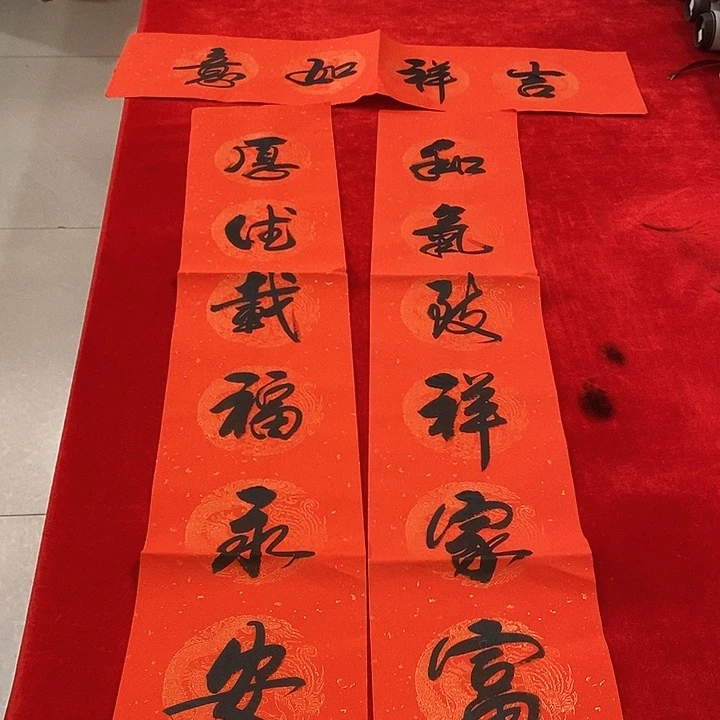 吉祥如意
和氣致祥家富
厚德載福永安